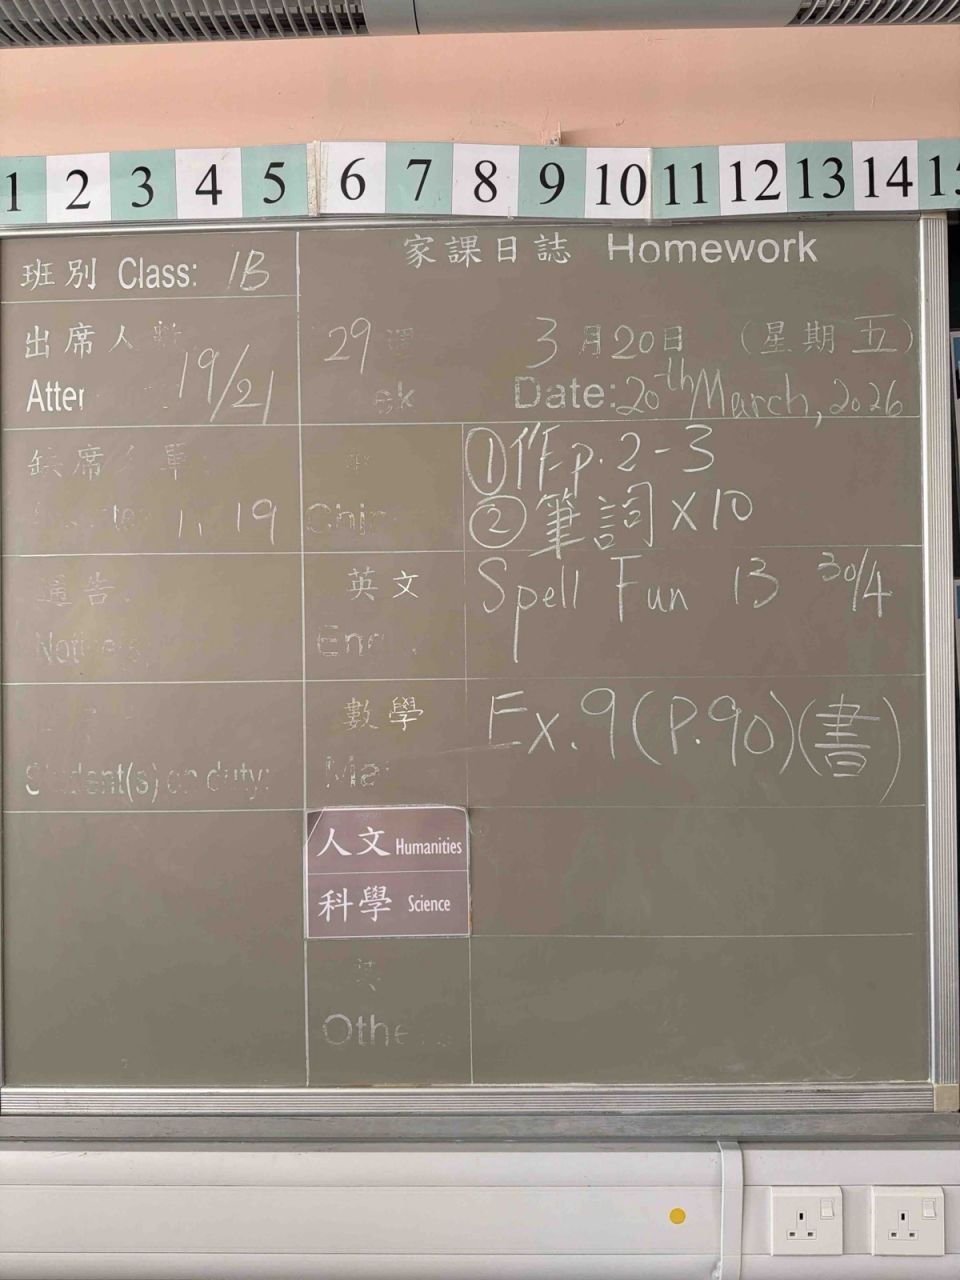 1 2 3 4 5 6 7 8 9 10 11 12 13 14
班別 Class: 1B
家課日誌 Homework
出席人 19/21
Atter
29 週
ek
3月20日 (星期五)
Date: 20th March, 2026
缺席 單
11, 19
Chi
①作 p. 2-3
②筆詞 x10
通告:
Notice(s)
英文
Eng
Spell Fun 13 30/4
Student(s) on duty:
數學
Ma
Ex. 9 (P.90) (書)
人文 Humanities
科學 Science
其
Othe